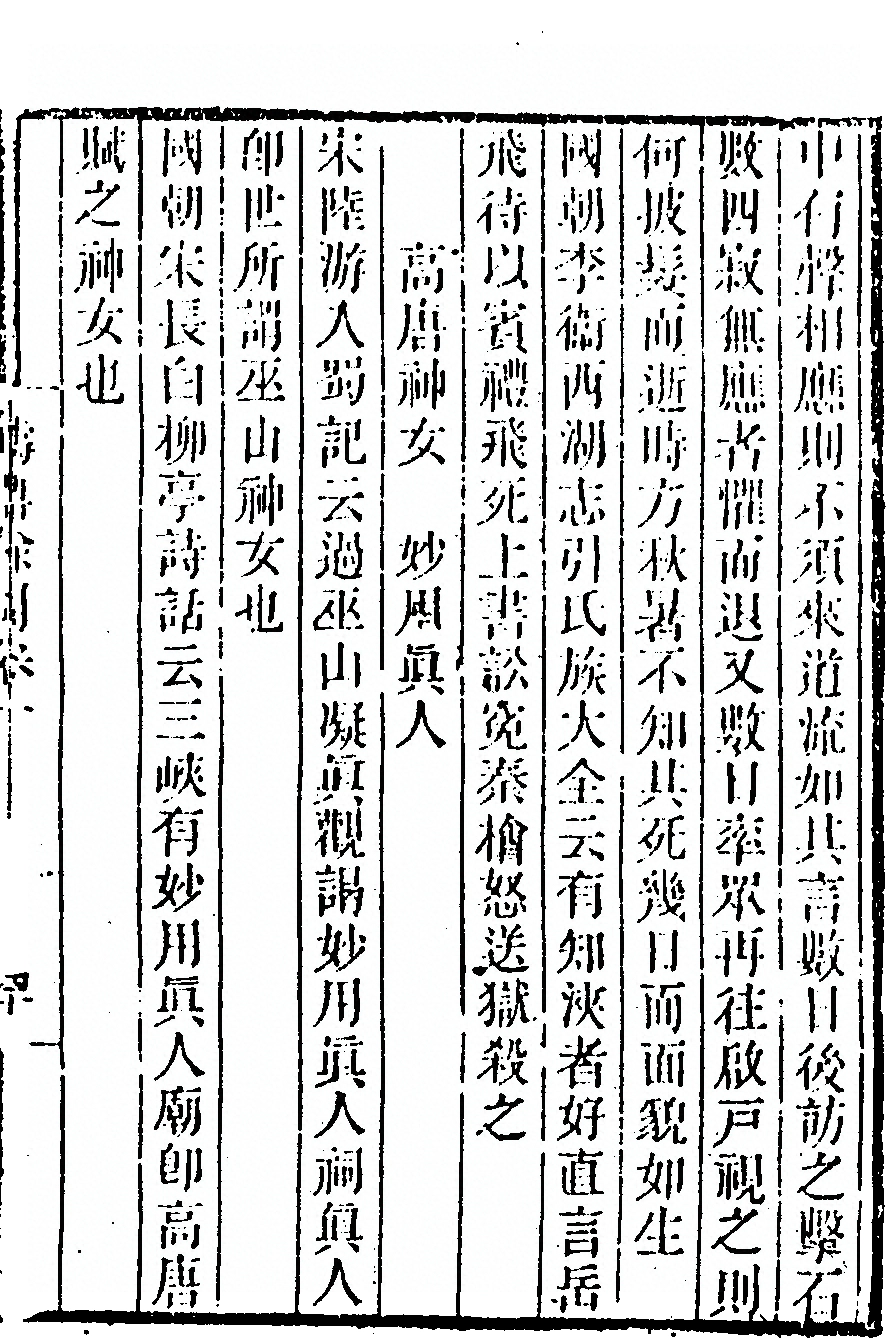 中有聲相應則不須來道流如其言數日後訪之擊石
數四寂無應者懼而退又數日率眾再往啟戸視之則
何披髮而逝時方秋暑不知其死幾日而面貌如生
國朝李衛西湖志引氏族大全云有知浹者好直言岳
飛待以賓禮飛死上書訟冤秦檜怒送獄殺之
高唐神女　妙用眞人
宋陸游入蜀記云過巫山凝眞觀謁妙用眞人祠眞人
卽世所謂巫山神女也
國朝宋長白柳亭詩話云三峽有妙用眞人廟卽高唐
賦之神女也